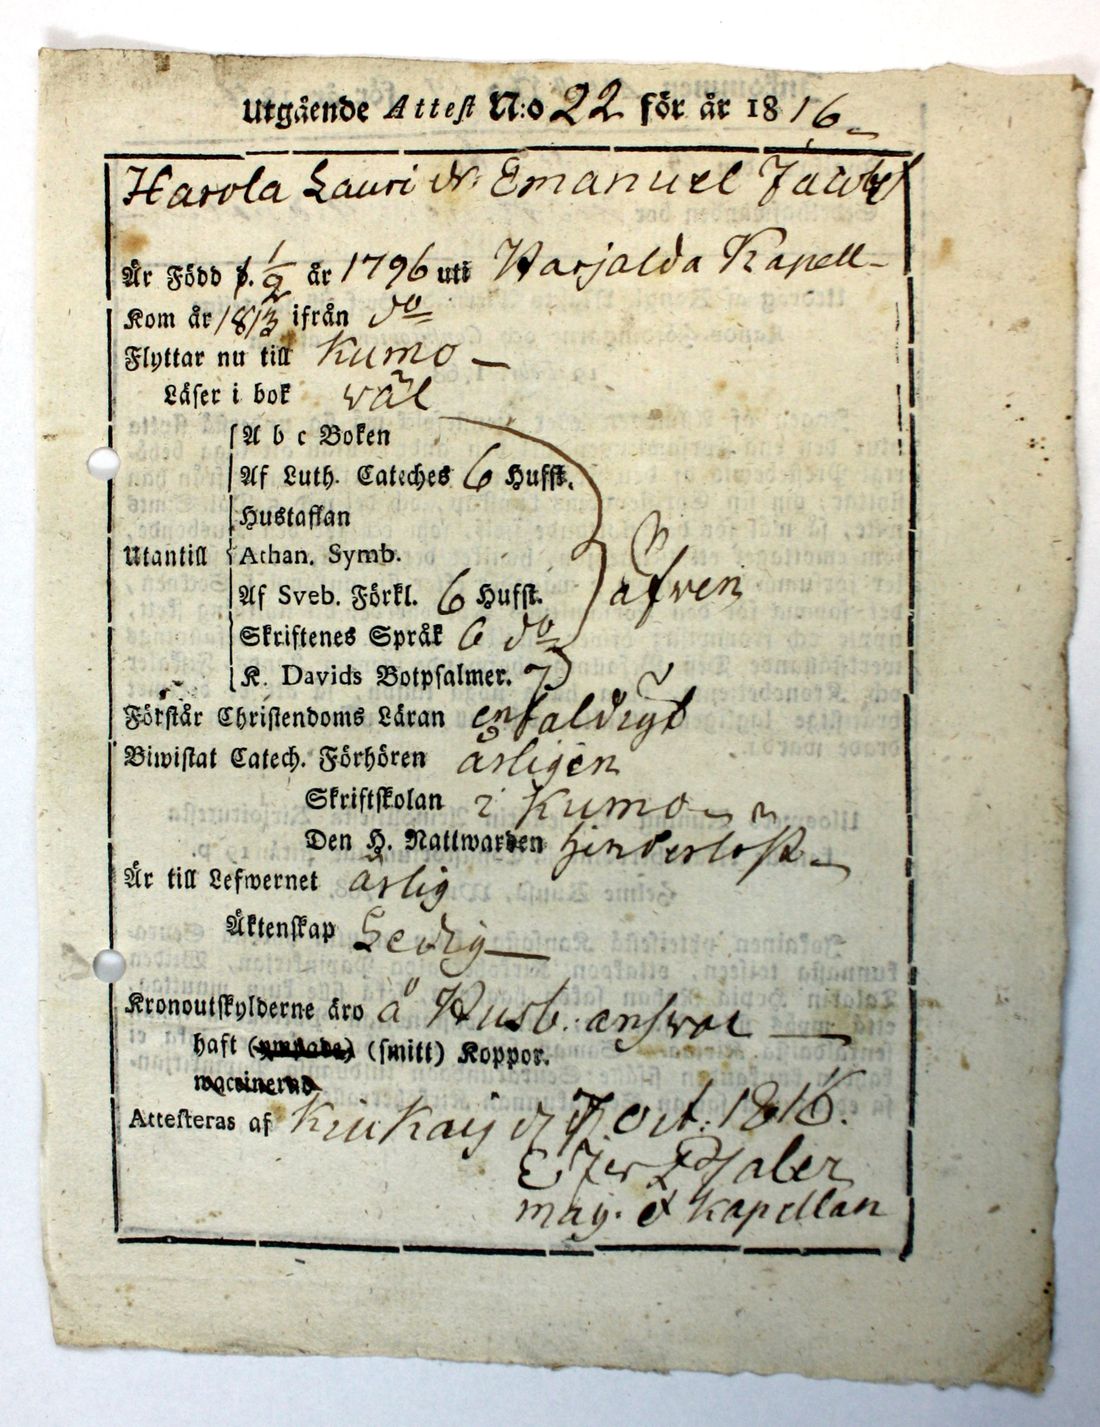 Utgående Attest N:o 22 för år 1816
Harola Lauri dr. Emanuel Jacobs
Är Född d. 1/2 år 1796 uti Harjalda Kapell
Kom år 1813 ifrån do
Flyttar nu till Kumo
Läser i bok väl
A b c Boken
Af Luth. Cateches 6 Hufst.
Hustaflan
Utantill Athan. Symb. äfven
Af Sveb. Förkl. 6 Hufst.
Skriftenes Språk 6 do
K. Davids Botpsalmer. 7
Förstår Christendoms Läran enfaldigt
Biwistat Catech. Förhören årligen
Skriftskolan i Kumo
Den H. Nattwarden hinderlöst
Är till Lefwernet ärlig
Äktenskap Ledig
Kronoutskylderne äro å Husb. answar
haft (ympade) (smitt) Koppor.
waccinerad
Attesteras af Kiukais d. 7 Oct. 1816.
mag. & Kapellan